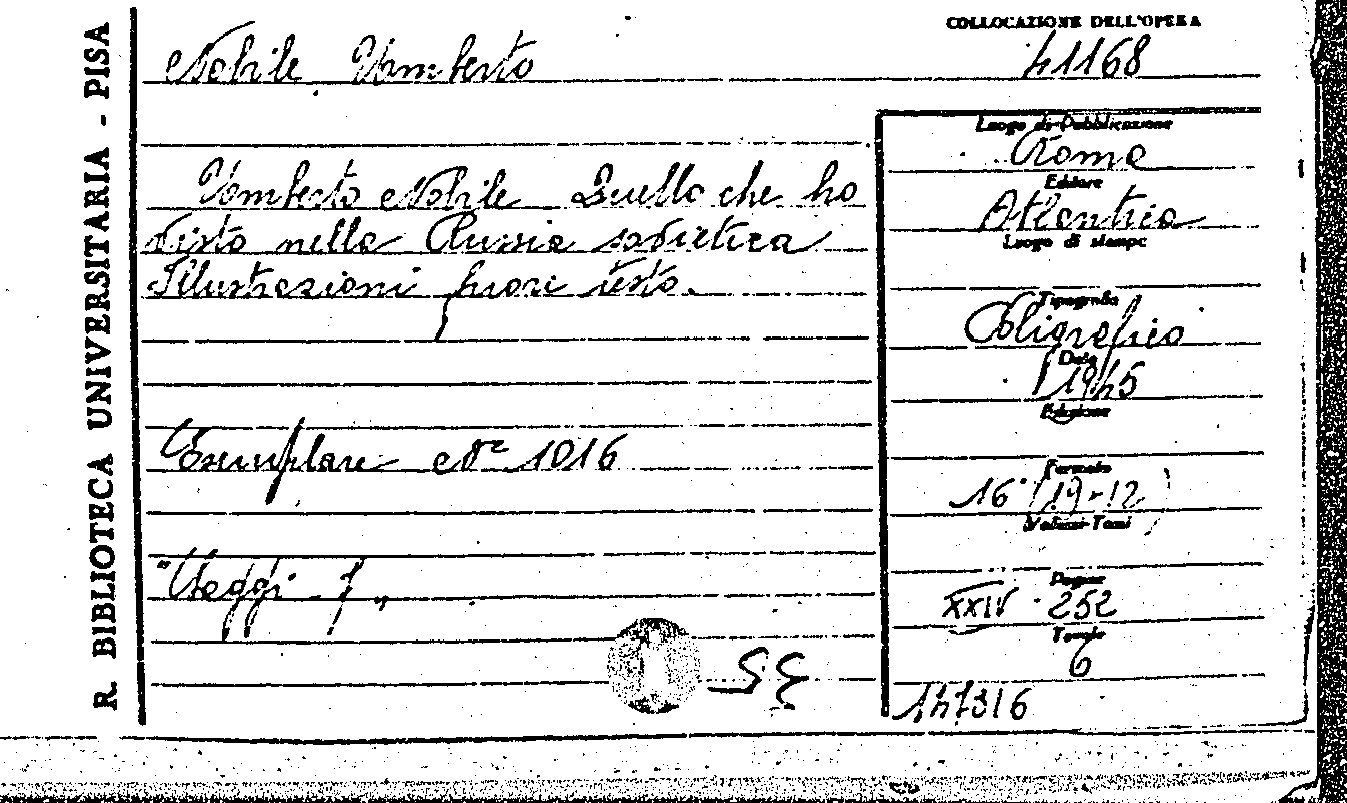 R. BIBLIOTECA UNIVERSITARIA - PISA
COLLOCAZIONE DELL'OPERA
41168
Nobile Umberto
Umberto Nobile Quello che ho
visto nella Russia sovietica
Illustrazioni fuori testo.
Esemplare N° 1016
"Viaggi - 7"
Luogo di Pubblicazione
Roma
Editore
Atlantica
Luogo di stampa
Tipografia
Poligrafico
Data
1945
Edizione
Formato
16° (19-12)
Volumi-Tomi
Pagine
XXIV - 252
Tavole
6
147316